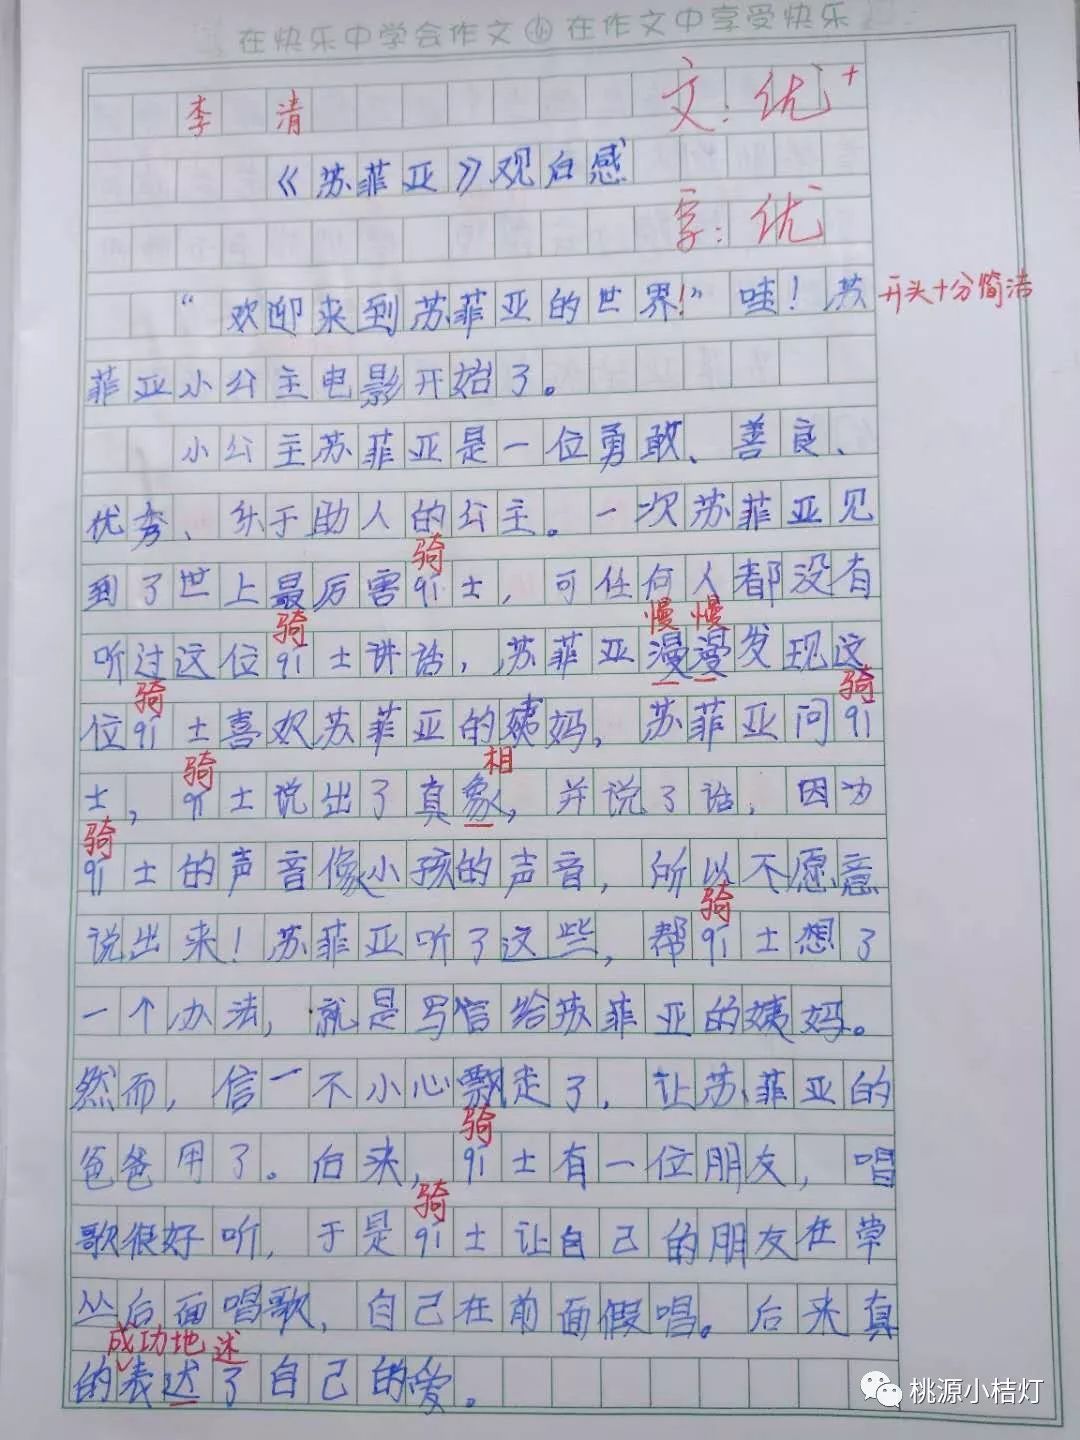 在快乐中学会作文 在作文中享受快乐
李清 文:优+
《苏菲亚》观后感
字:优
“欢迎来到苏菲亚的世界!”哇!苏 开头十分简洁
菲亚小公主电影开始了。
小公主苏菲亚是一位勇敢、善良、
优秀、乐于助人的公主。一次苏菲亚见
骑
到了世上最厉害qí士,可任何人都没有
骑 慢慢
听过这位qí士讲话,苏菲亚漫漫发现这
骑 骑
位qí士喜欢苏菲亚的姨妈,苏菲亚问qí
骑 相
士,qí士说出了真象,并说了话,因为
骑
qí士的声音像小孩的声音,所以不愿意
骑
说出来!苏菲亚听了这些,帮qí士想了
一个办法,就是写信给苏菲亚的姨妈。
然而,信一不小心飘走了,让苏菲亚的
骑
爸爸用了。后来,qí士有一位朋友,唱
骑
歌很好听,于是qí士让自己的朋友在草
丛后面唱歌,自己在前面假唱。后来真
成功地 述
的表达了自己的爱。
桃源小桔灯